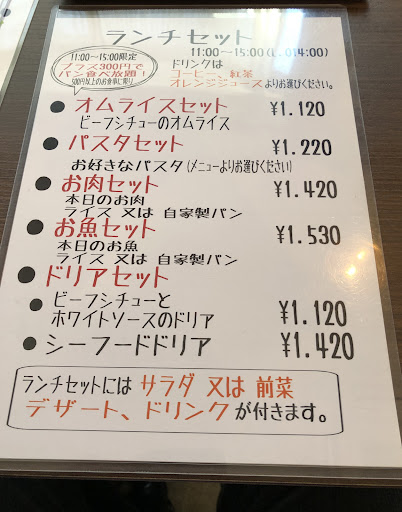 ランチセット
11:00〜15:00(L.O14:00)
11:00〜15:00限定
プラス300円で
パン食べ放題！
500円以上のお食事に限り
ドリンクは
コーヒー、紅茶
オレンジジュースよりお選びください。
●オムライスセット ¥1.120
ビーフシチューのオムライス
●パスタセット ¥1.220
お好きなパスタ(メニューよりお選びください)
●お肉セット ¥1.420
本日のお肉
ライス 又は 自家製パン
●お魚セット ¥1.530
本日のお魚
ライス 又は 自家製パン
●ドリアセット
●ビーフシチューと
ホワイトソースのドリア ¥1.120
●シーフードドリア ¥1.420
ランチセットには サラダ 又は 前菜
デザート、ドリンクが付きます。